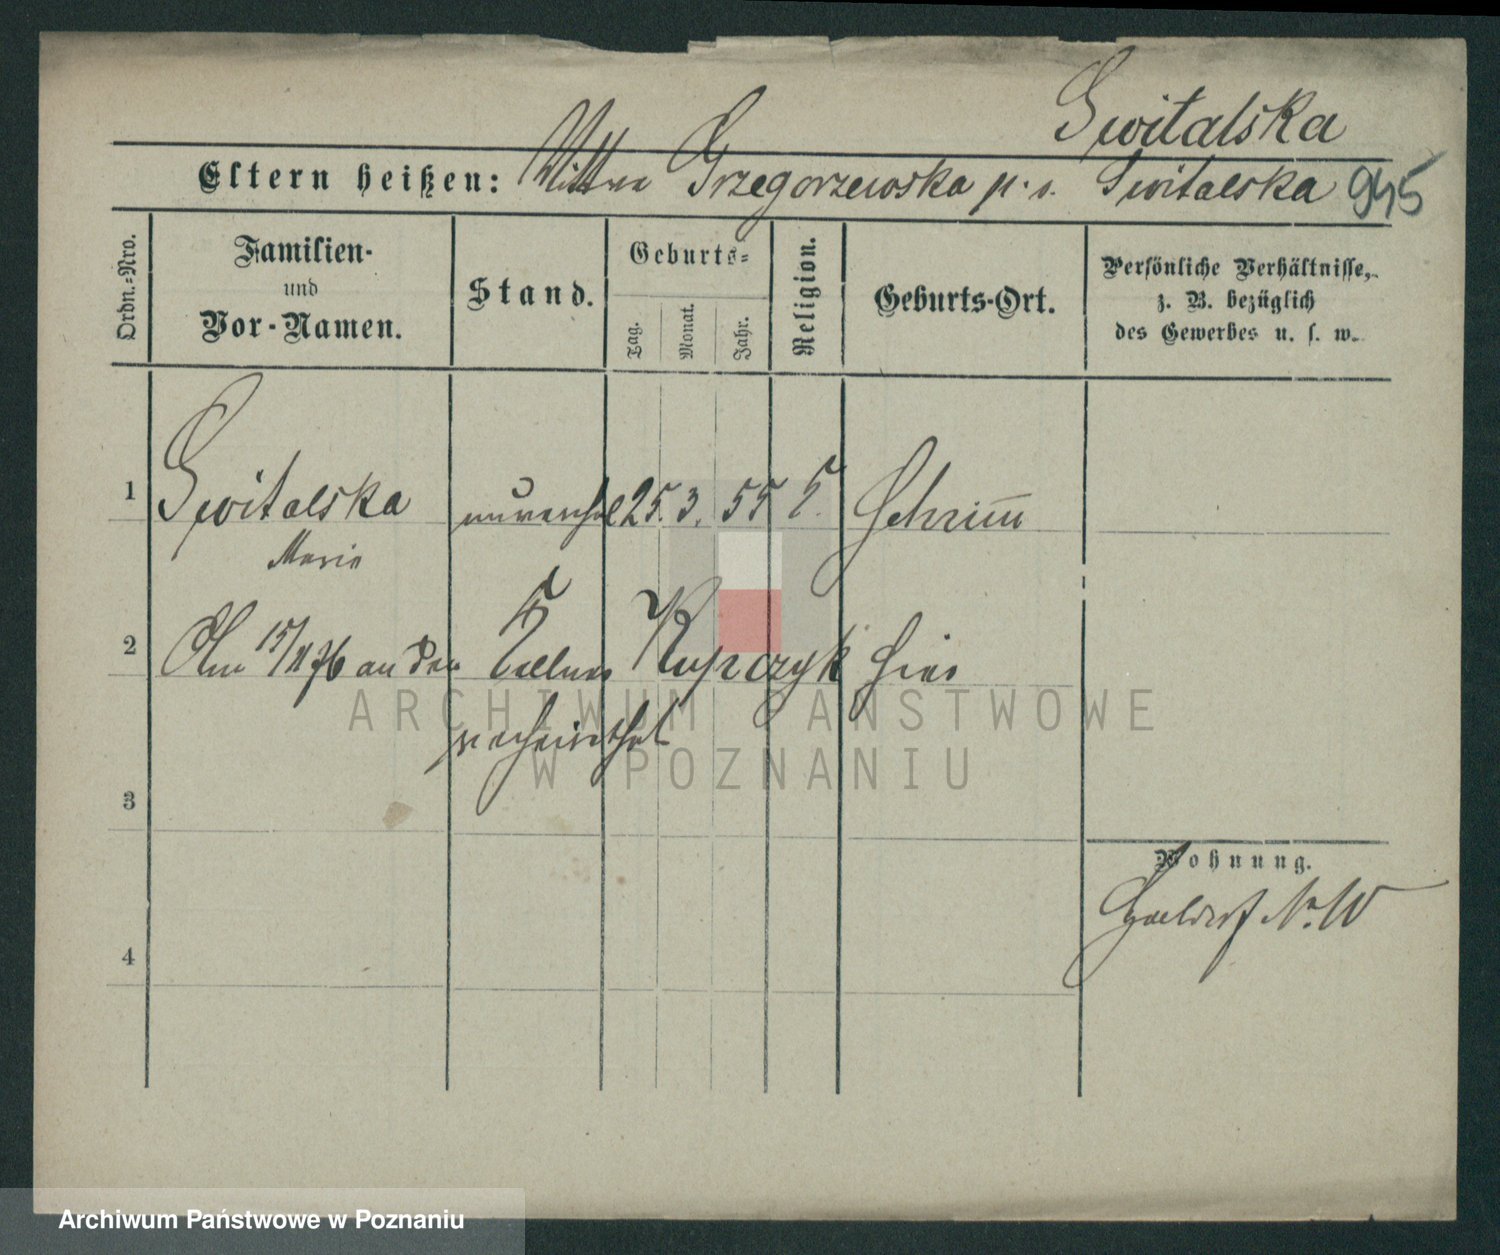 Switalska
Eltern heißen: Wittwe Grzegorzewska p. v. Switalska 945
Ordn.-Nro.
Familien-
und
Vor-Namen.
Stand.
Geburts-
Tag.
Monat.
Jahr.
Religion.
Geburts-Ort.
Persönliche Verhältnisse,
z. B. bezüglich
des Gewerbes u. s. w.
1 Switalska unverehel 25. 3. 55 Schrimm
Marie
2 Am 15/11 76 an den Kellner Kupczyk hier
verheirathet
3
Wohnung.
Nr. 10
4
ARCHIWUM PAŃSTWOWE
W POZNANIU
Archiwum Państwowe w Poznaniu